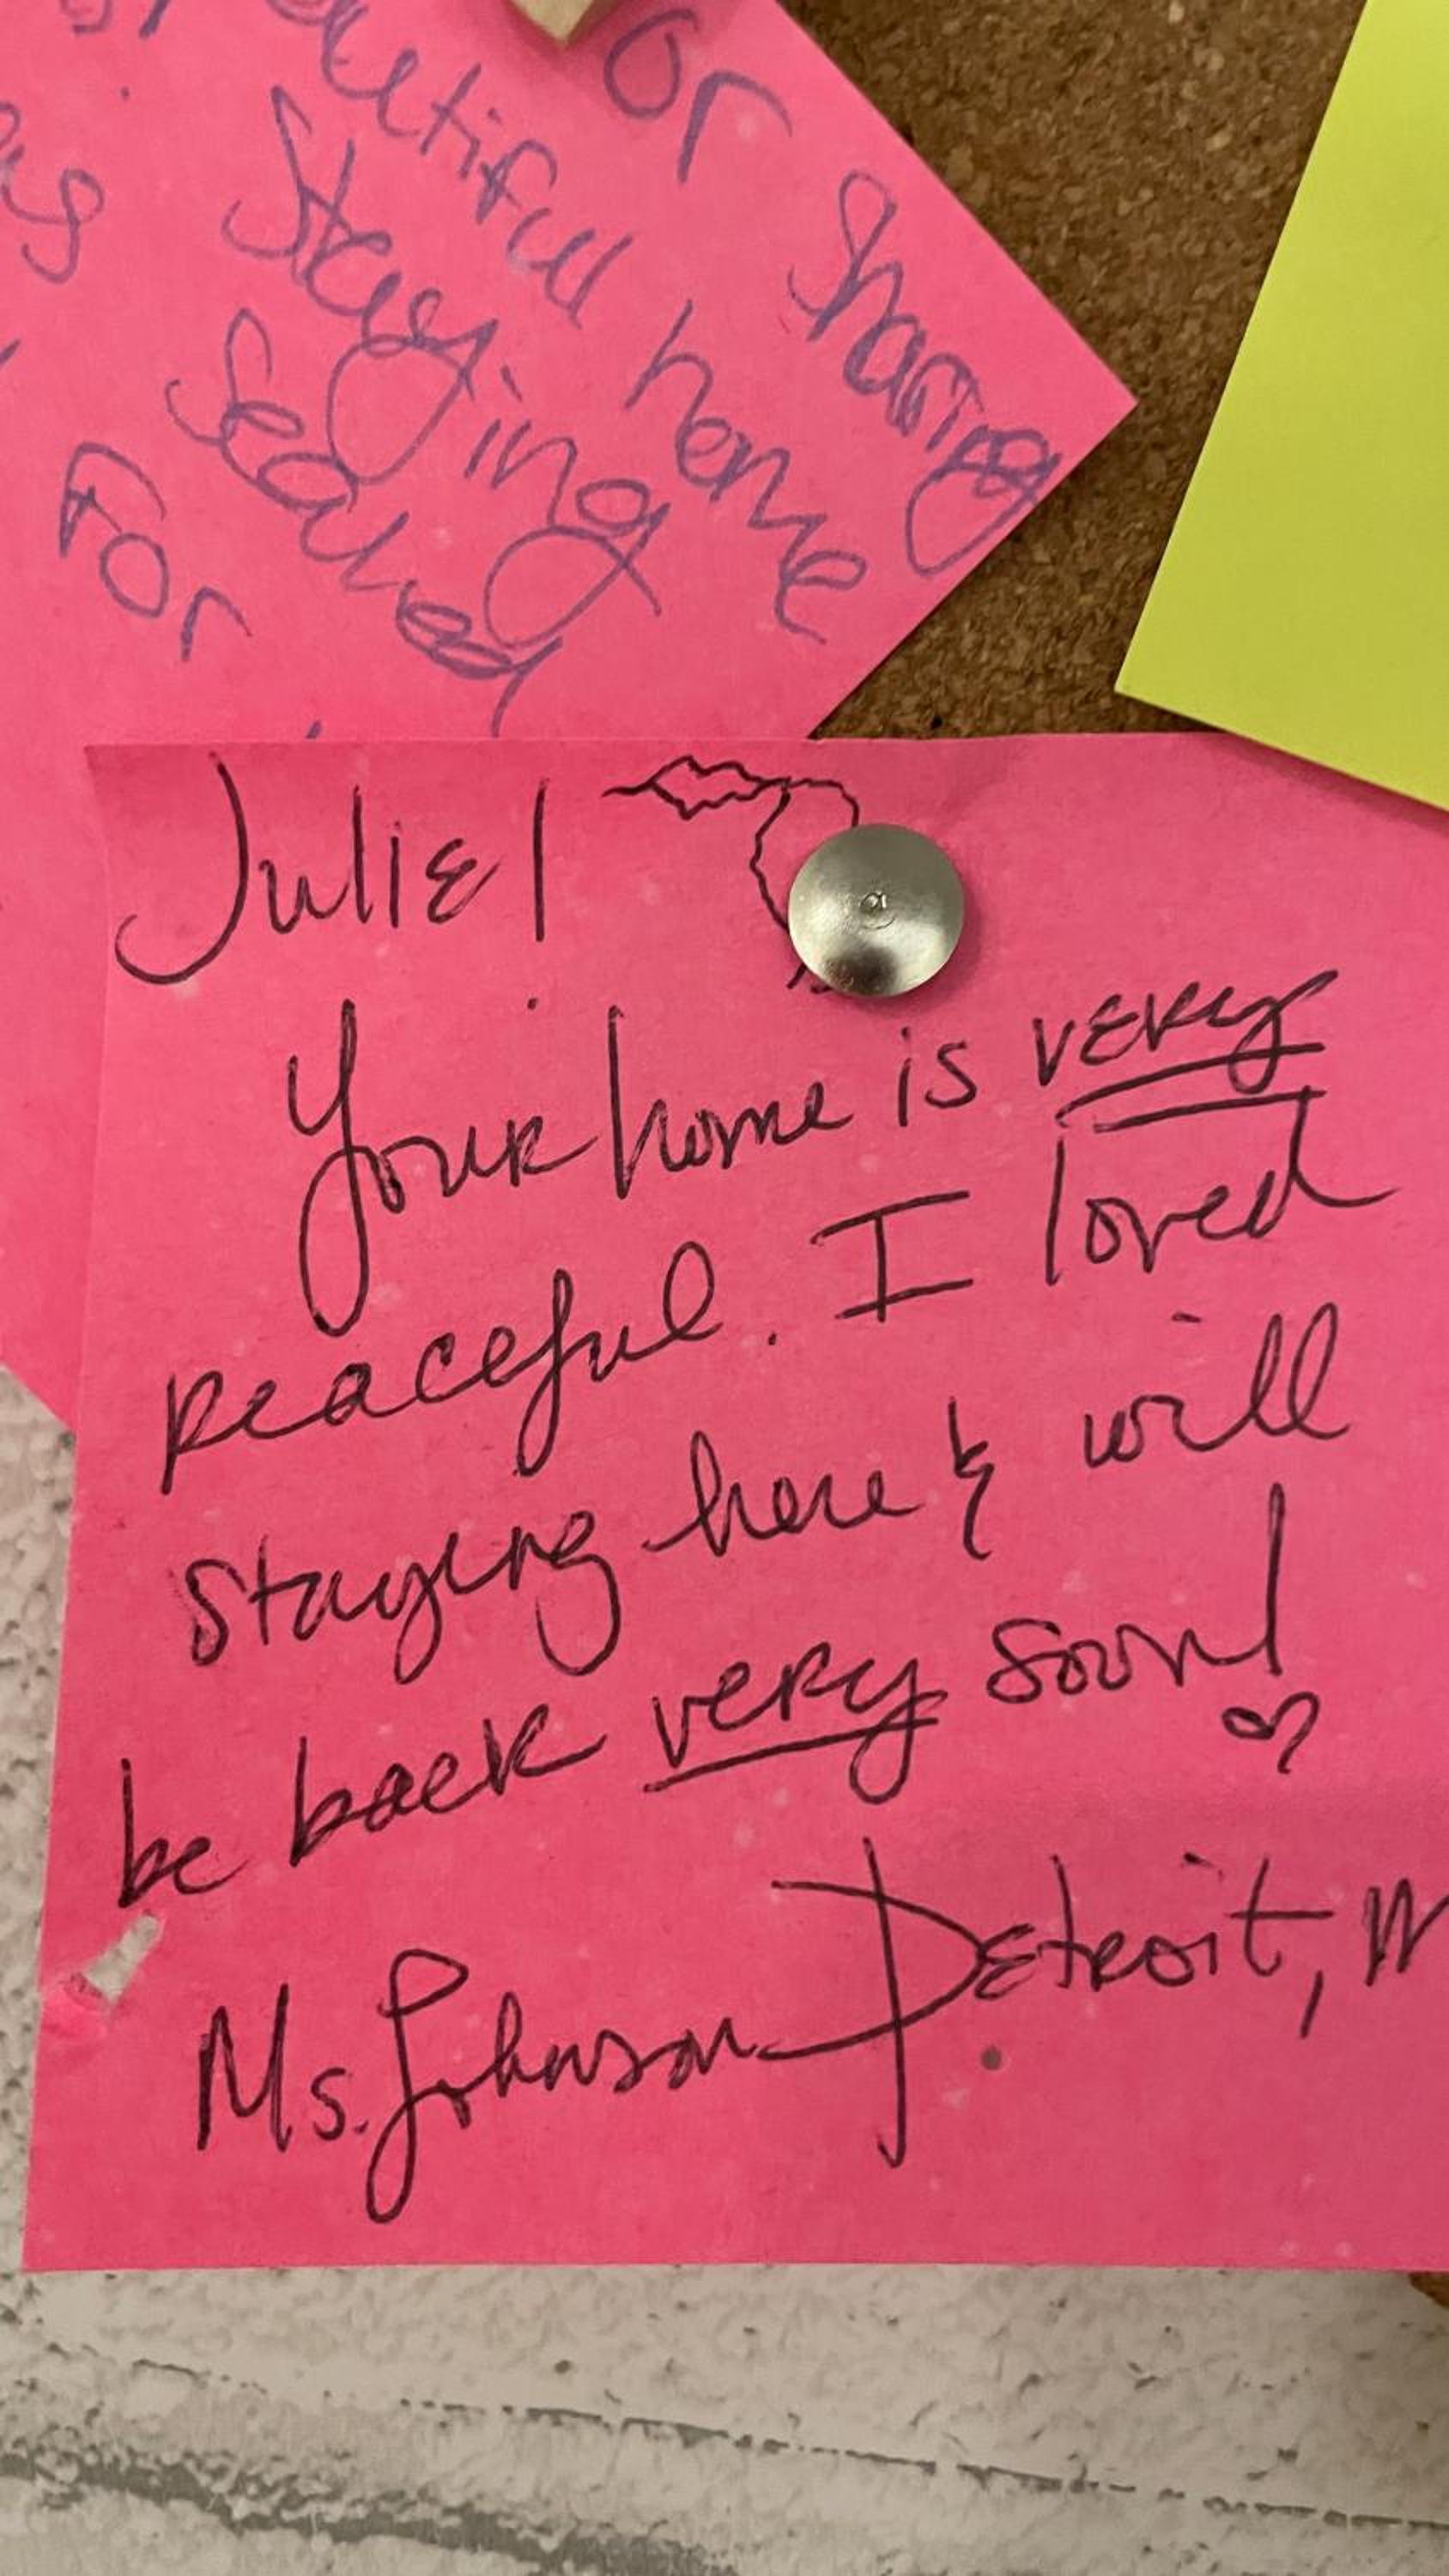 or sharing
eautiful home
Staying
Sed
For
Julie!
Your home is very
peaceful. I loved
staying here & will
be back very soon!
Ms. Johnson Detroit, M